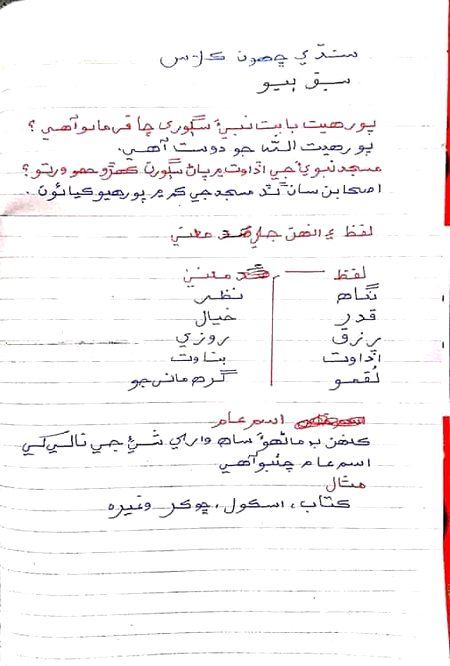 سنڌي ڇهون ڪلاس
سبق ٻيو
پورهيت بابت نبيءَ سڳوري ڇا فرمايو آهي؟
پورهيت الله جو دوست آهي.
مسجد نبويءَ جي اڏاوت ۾ پاڻ سڳورن ڪهڙو حصو ورتو؟
اصحابن سان گڏ مسجد جي ڪم ۾ پورهيو ڪيائون.
لفظ ۽ انهن جي معنيٰ
لفظ معنيٰ
نگاهه نظر
قدر خيال
رزق روزي
اڏاوت بناوت
لقمو گرهه ماني جو
اسم عام
ڪنهن به ماڻهو ساهه واري شيءِ جي نالي کي
اسم عام چئبو آهي
مثال
ڪتاب، اسڪول، ڇوڪر وغيره